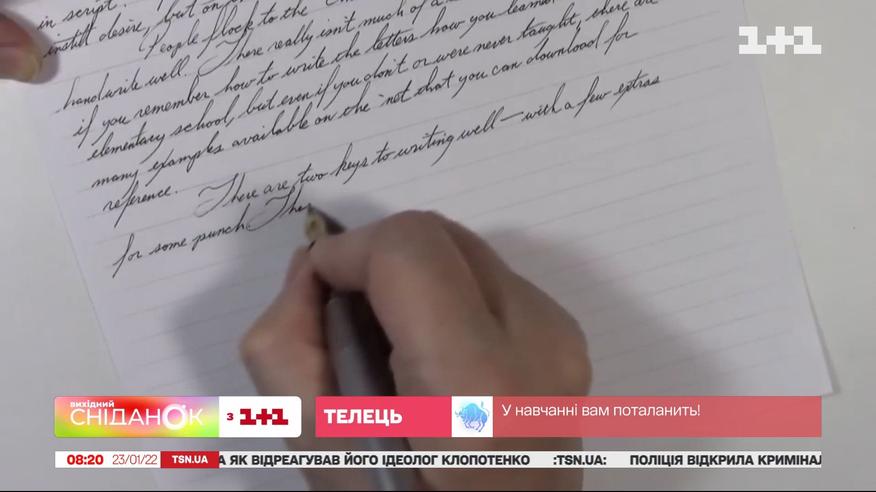 in script.
instill desire, but on
People flock to the
handwrite well. There really isn't much of a
if you remember how to write the letters how you learned
elementary school, but even if you don't or were never taught, there are
many examples available on the -net that you can download for
reference.
There are two keys to writing well — with a few extras
for some punch. The
1+1
ВИХІДНИЙ
СНІДАНОК
З 1+1
ТЕЛЕЦЬ
У навчанні вам поталанить!
08:20 23/01/22 TSN.UA А ЯК ВІДРЕАГУВАВ ЙОГО ІДЕОЛОГ КЛОПОТЕНКО :TSN.UA: ПОЛІЦІЯ ВІДКРИЛА КРИМІНАЛ